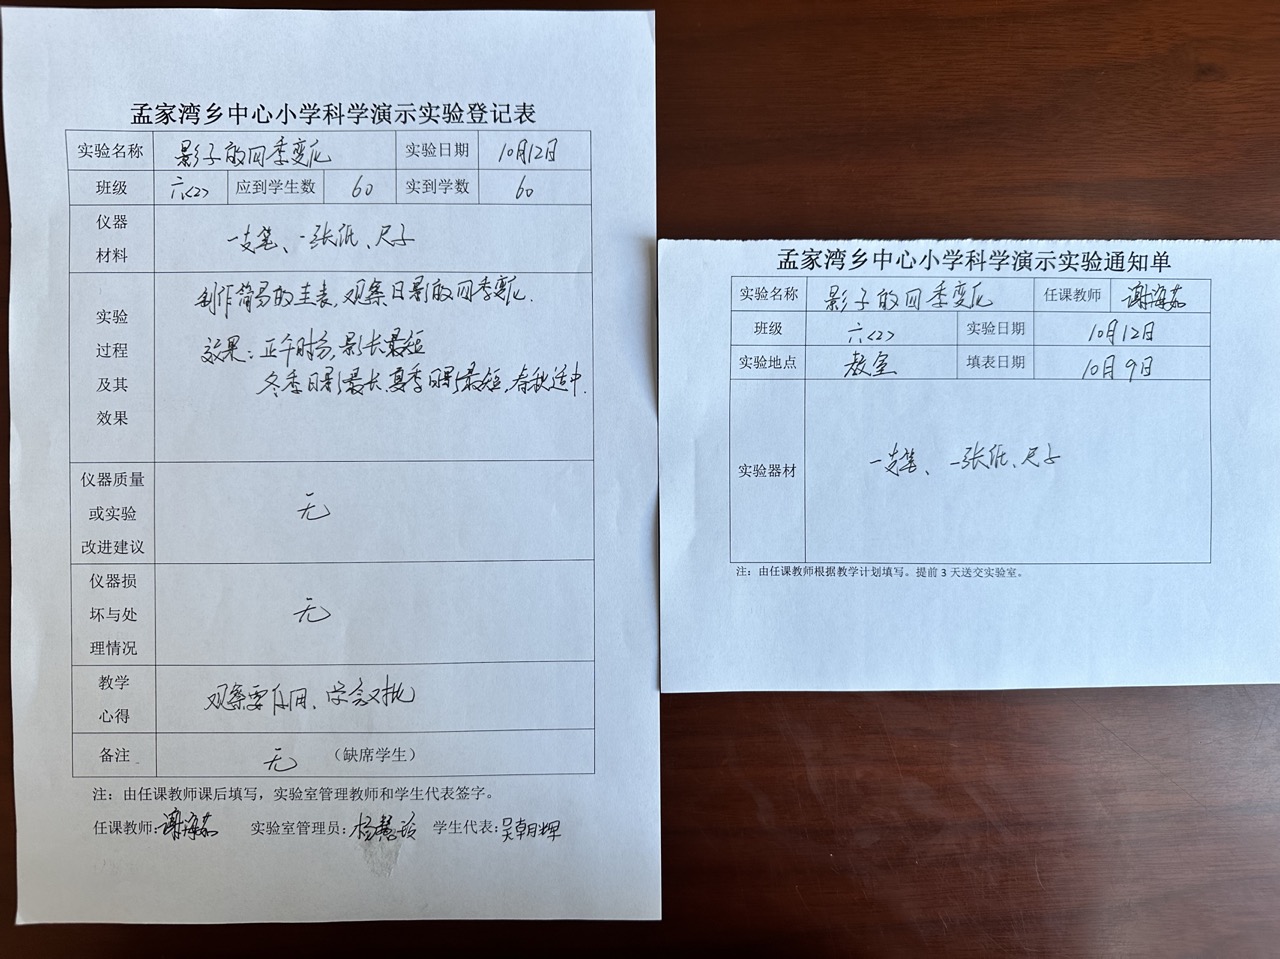 孟家湾乡中心小学科学演示实验登记表
实验名称 影子的四季变化 实验日期 10月12日
班级 六<2> 应到学生数 60 实到学数 60
仪器
材料
一支笔、一张纸、尺子
实验
过程
及其
效果
制作简易的圭表,观察日影的四季变化.
效果:正午时分,影长最短
冬季日影最长,夏季日影最短,春秋适中.
仪器质量
或实验
改进建议
无
仪器损
坏与处
理情况
无
教学
心得
观察要
备注 无 (缺席学生)
注:由任课教师课后填写,实验室管理教师和学生代表签字。
任课教师:谢海茹 实验室管理员:杨慧玲 学生代表:吴朝辉
孟家湾乡中心小学科学演示实验通知单
实验名称 影子的四季变化 任课教师 谢海茹
班级 六<2> 实验日期 10月12日
实验地点 教室 填表日期 10月9日
实验器材 一支笔、一张纸、尺子
注:由任课教师根据教学计划填写。提前 3 天送交实验室。